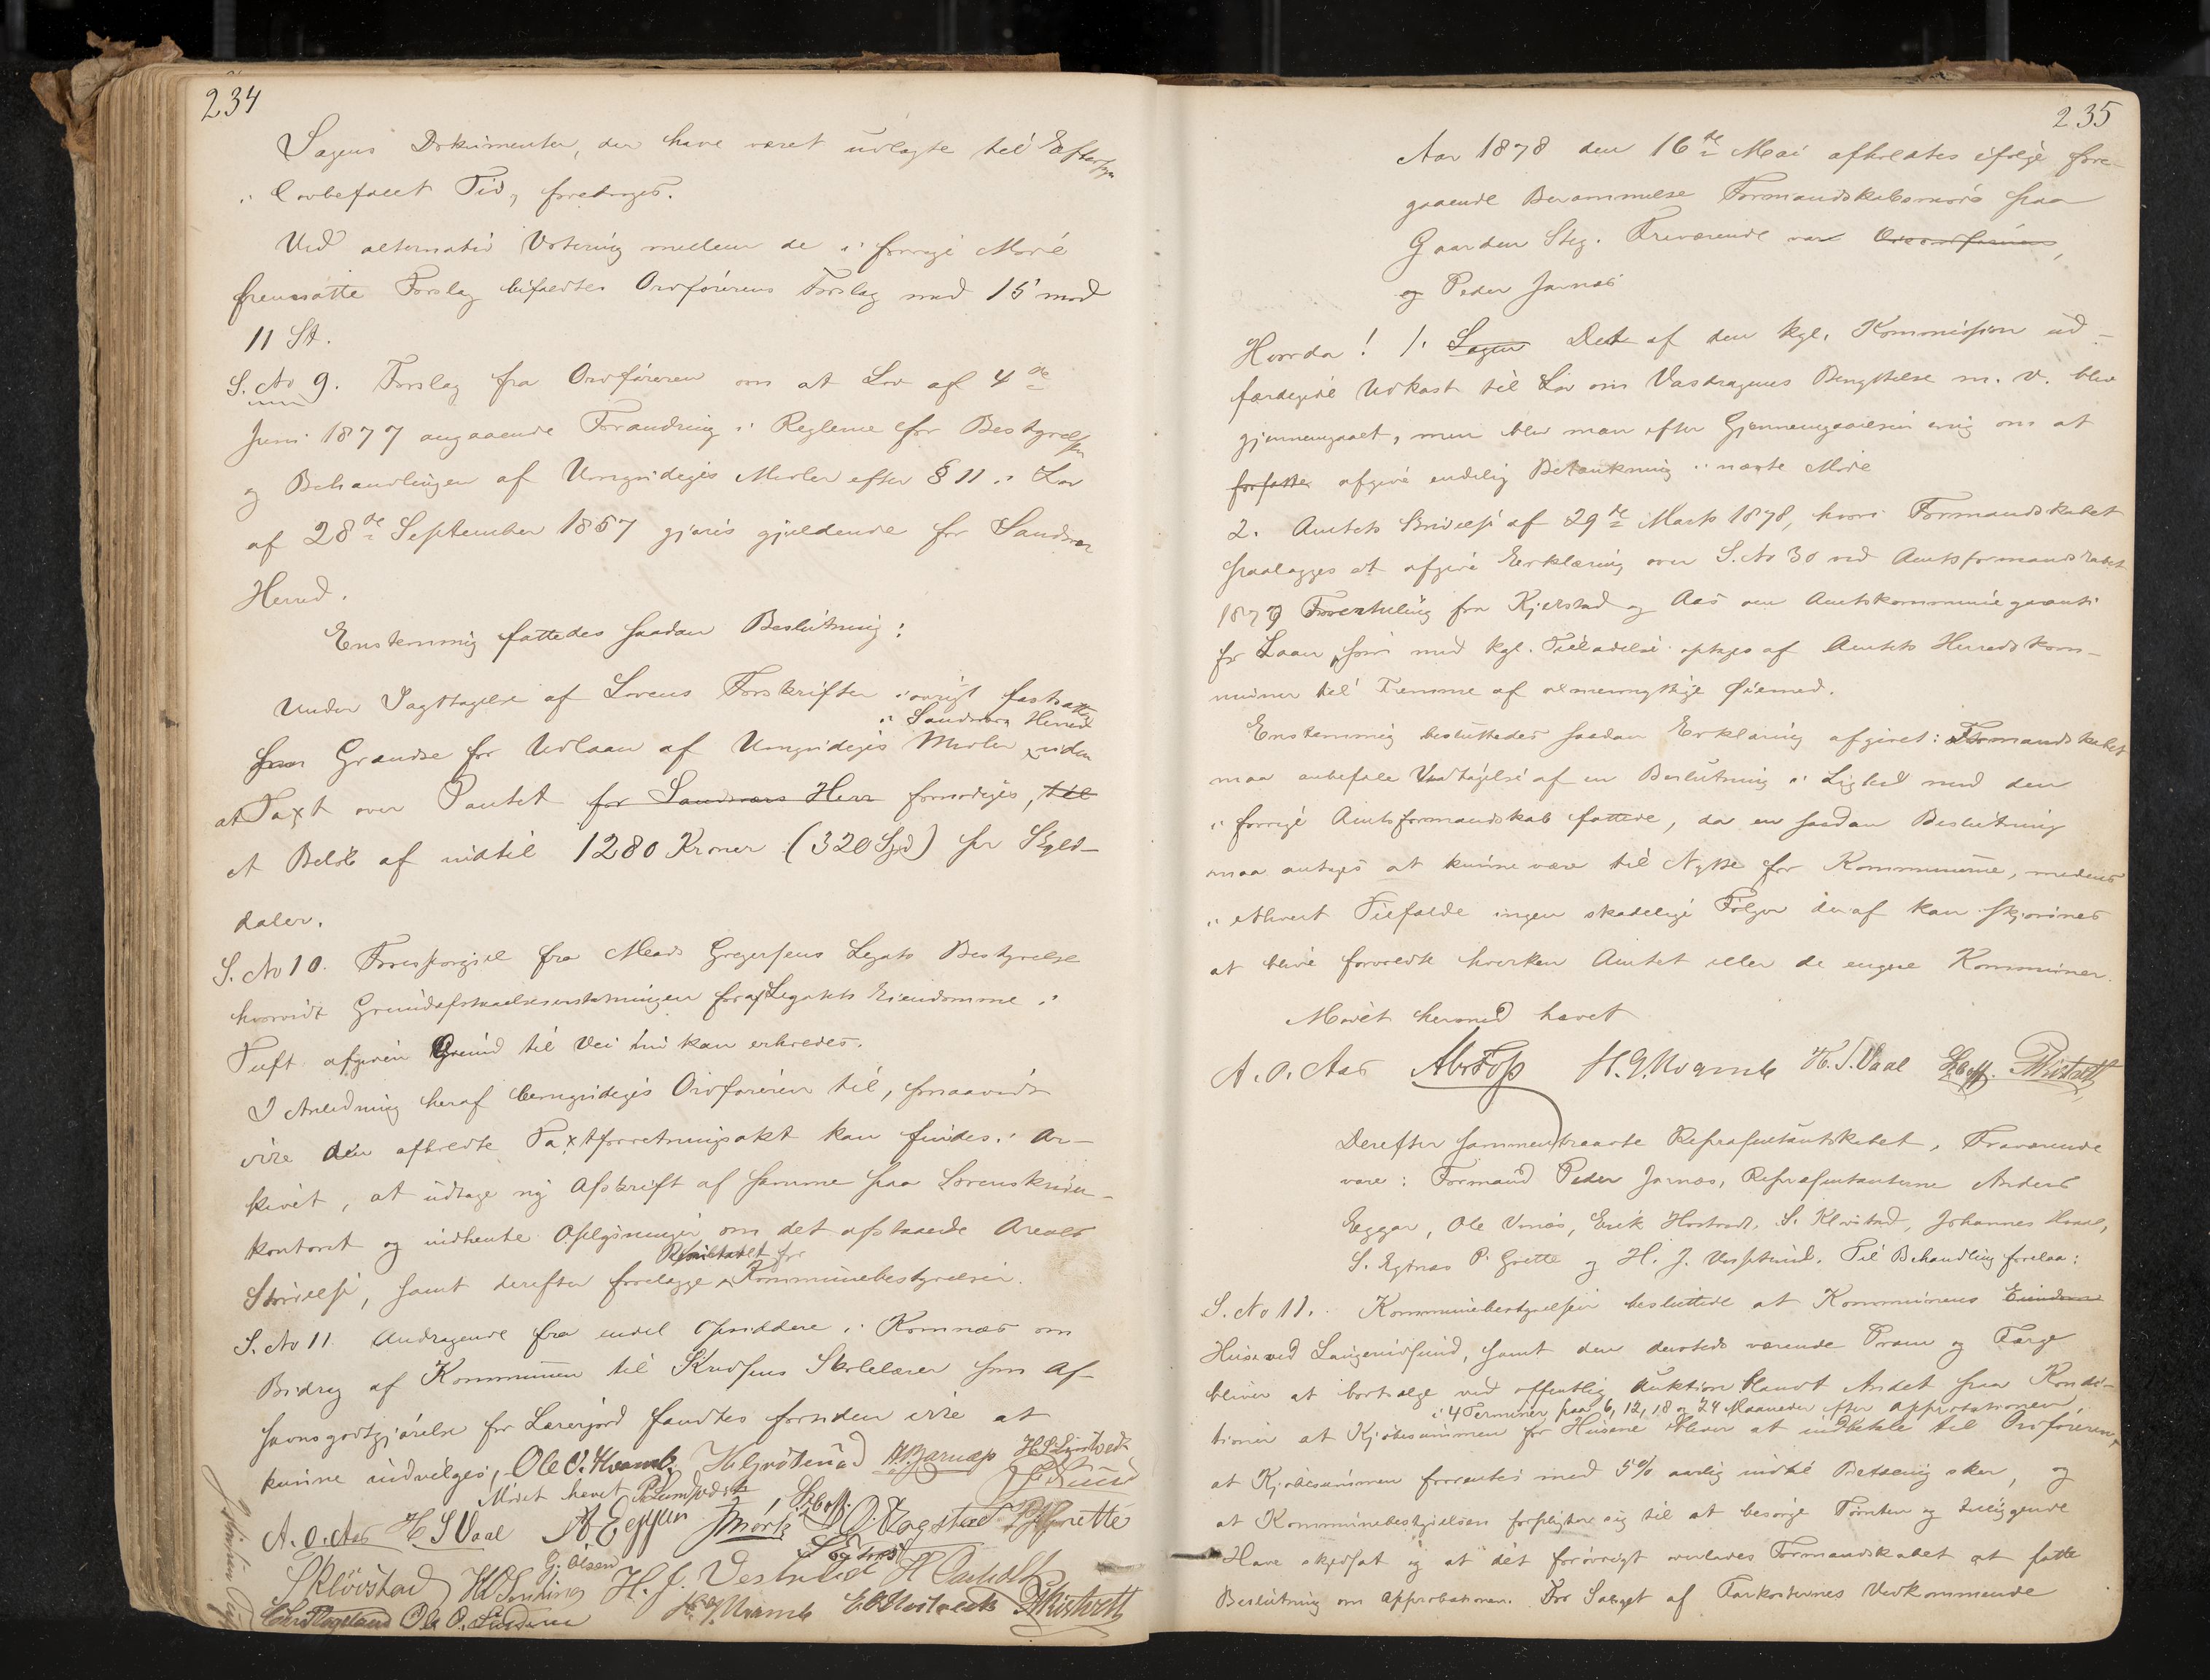 234
Sagens Dokumenter, der have været udlagte til Eftersyn
i lovbefalet Tid, foretoges.
Ved alternativ Votering mellem de i forrige Møde
fremsatte Forslag bifaldtes Ordførerens Forslag med 15 mod
11 St.
S. No 9. Forslag fra Ordføreren om at Lov af 4de
Juni 1877 angaaende Forandring i Reglerne for Bestyrelsen
og Behandlingen af Umyndiges Midler efter § 11 i Lov
af 28de September 1857 gjøres gjældende for Sandsvær
Herred.
Enstemmig fattedes saadan Beslutning:
Under Iagttagelse af Lovens Forskrifter iøvrigt fastsattes
i Sandsvær Herred
som Grændse for Udlaan af Umyndiges Midler uden
at Taxt over Pantet for Sandsvær Herr fornødiges, til
et Beløb af indtil 1280 Kroner (320 Spd) pr Skyld-
daler.
S. No 10. Forespørgsel fra Mads Gregersens Legats Bestyrelse
hvorvidt Grundafstaaelseserstatningen for af Legatets Eiendomme i
Tuft afgiven Grund til Vei nu kan erholdes.
I Anledning heraf bemyndiges Ordføreren til, forsaavidt
ikke den afholdte Taxtforretningsakt kan findes i Ar-
kivet, at udtage ny Afskrift af samme paa Sorenskriver-
kontoret og indhente Oplysninger om det afstaaede Areals
Resultatet for
Størrelse, samt derefter forelægge Kommunebestyrelsen.
S. No 11. Andragende fra endel Opsiddere i Komnæs om
Bidrag af Kommunen til Kredsens Skolelærer som Af-
savnsgodtgjørelse for Lærerjord fandtes fortiden ikke at
kunne indvilges. Ole O. Hvamb.
Mødet hævet
A. O. Aas H S Vaal A Eggar Mørk L. O. Rogstad P. Grette
G. Olsen S Egtnæs
S Kløvstad H. J. Vestlund
Chr. Rogeland Ole O. H. G. Hvamb E. Hostvedt
235
Aar 1878 den 16de Mai afholdtes ifølge fore-
gaaende Berammelse Formandskabsmøde paa
Gaarden Steg. Fraværende var Ordføreren,
og Peder Jarnæs
Hvorda! 1. Sagen Det af den kgl. Kommission ud-
færdigede Udkast til Lov om Vasdragenes Benyttelse m. v. blev
gjennemgaaet, men blev man efter Gjennemgaaelsen enig om at
forfatte afgive endelig Betænkning i næste Møde
2. Amtets Skrivelse af 29de Marts 1878, hvori Formandskabet
paalægges at afgive Erklæring over S. No 30 ved Amtsformandskabet
1877 Forestilling fra Kjerstad og Aas om Amtskommunegaranti
for Laan, som med kgl. Tilladelse optages af Amtets Herredskom-
muner til Fremme af almennyttige Øiemed.
Enstemmig besluttedes saadan Erklæring afgivet: Formandskabet
maa anbefale Vedtagelse af en Beslutning i Lighed med den
i forrige Amtsformandskab fattede, da en saadan Beslutning
maa antages at kunne være til Nytte for Kommunerne, medens
i ethvert Tilfælde ingen skadelige Følger deraf kan skjønnes
at blive forvoldt hverken Amtet eller de enkelte Kommuner.
Mødet hermed hævet
A. O. Aas Abr Foss H. G. Hvamb H. S. Vaal
Derefter sammentraadte Repræsentantskabet. Fraværende
vare: Formand Peder Jarnæs, Repræsentanterne Anders
Eggar, Ole Vinæs, Erik Hostvedt, S. Kløvstad, Johannes
S. Egtnæs P. Grette og H. J. Vestlund. Til Behandling forelaa:
S. No 11. Kommunebestyrelsen besluttede at Kommunens Eiendom
Huse ved Langerudsund, samt den dersteds værende Pram og Færge
bliver at bortsælge ved offentlig Auktion blandt Andet paa Kondi-
i 4 Terminer paa 6, 12, 18 og 24 Maaneder efter Approbationen,
tioner at Kjøbesummen for Husene bliver at indbetale til Ordføreren,
at Kjøbesummen forrentes med 5% aarlig indtil Betaling sker, og
at Kommunebestyrelsen forpligter sig til at besørge Tomten og omliggende
Have og at det forøvrigt overlades Formandskabet at fatte
Beslutning om Approbationen. For Salget af Farkosternes Vedkommende